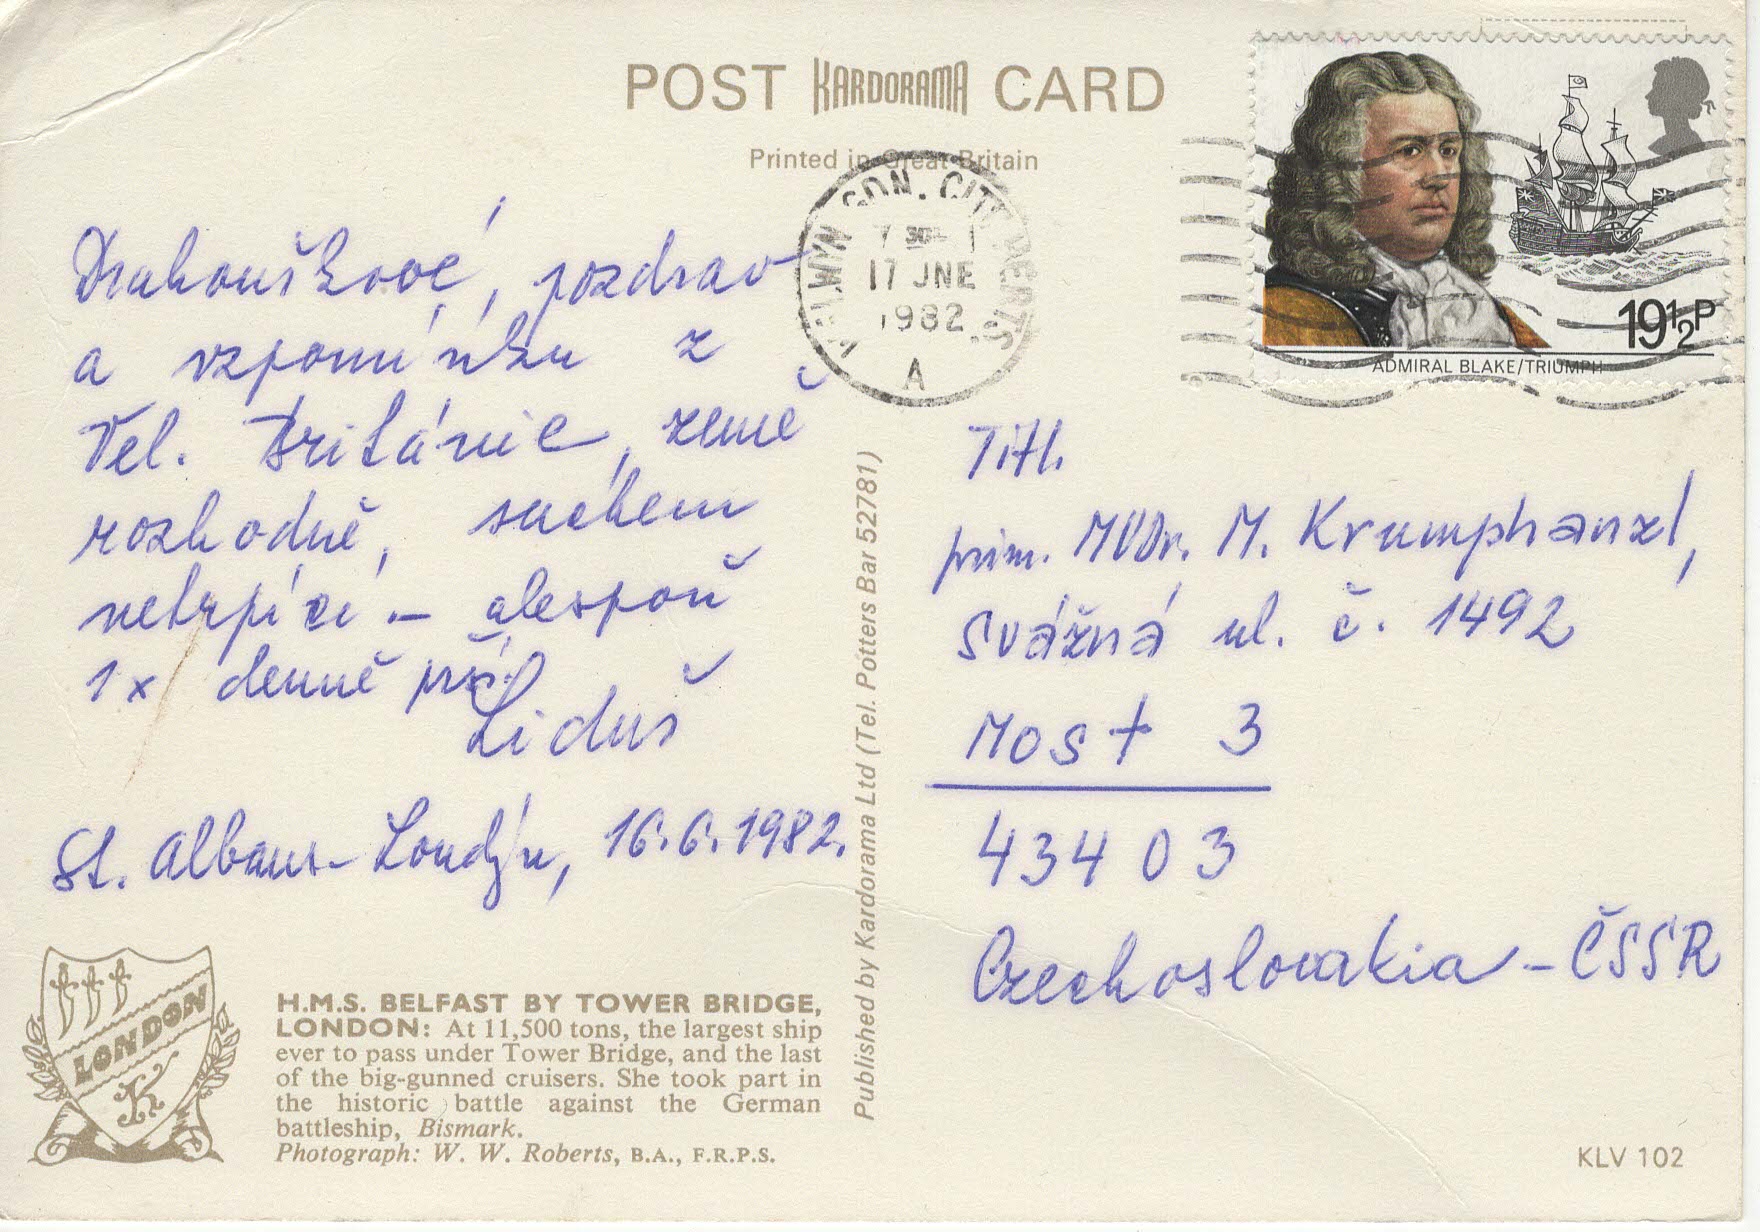 POST KARDORAMA CARD
Printed in Great Britain
WELWYN GDN. CITY HERTS.
17 JNE
1982
A
19½P
ADMIRAL BLAKE/TRIUMPH
Drahouškové, pozdrav
a vzpomínku z
Vel. Británie, země
rozhodně, suchem
netrpící – alespoň
1x denně prší
Liduš
St. Albans – Londýn, 16.6.1982.
Titl.
prim. MVDr. M. Krumphanzl,
Svážná ul. č. 1492
Most 3
434 03
Czechoslovakia – ČSSR
Published by Kardorama Ltd (Tel. Potters Bar 52781)
LONDON
K
H.M.S. BELFAST BY TOWER BRIDGE,
LONDON: At 11,500 tons, the largest ship
ever to pass under Tower Bridge, and the last
of the big-gunned cruisers. She took part in
the historic battle against the German
battleship, Bismark.
Photograph: W. W. Roberts, B.A., F.R.P.S.
KLV 102